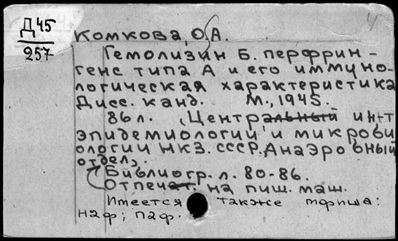 Д45
257
Комкова, О.А.
Гемолизин Б. перфрин-
генс типа А и его иммуно-
логическая характеристика
Дисс. канд. М., 1945.
86л. Центральный инт
эпидемиологии и микроби
ологии НКЗ. СССР. Анаэробный
отдел,
Библиогр. л. 80-86.
Отпечат. на пиш. маш.
Имеется также мфиша:
наф; паф.